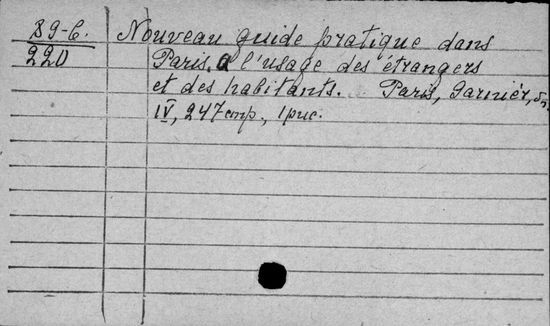 89-6. Nouveau guide pratique dans
220 Paris, a l'usage des étrangers
et des habitants. Paris, Garnier,
IV, 247 стр., 1 рис.